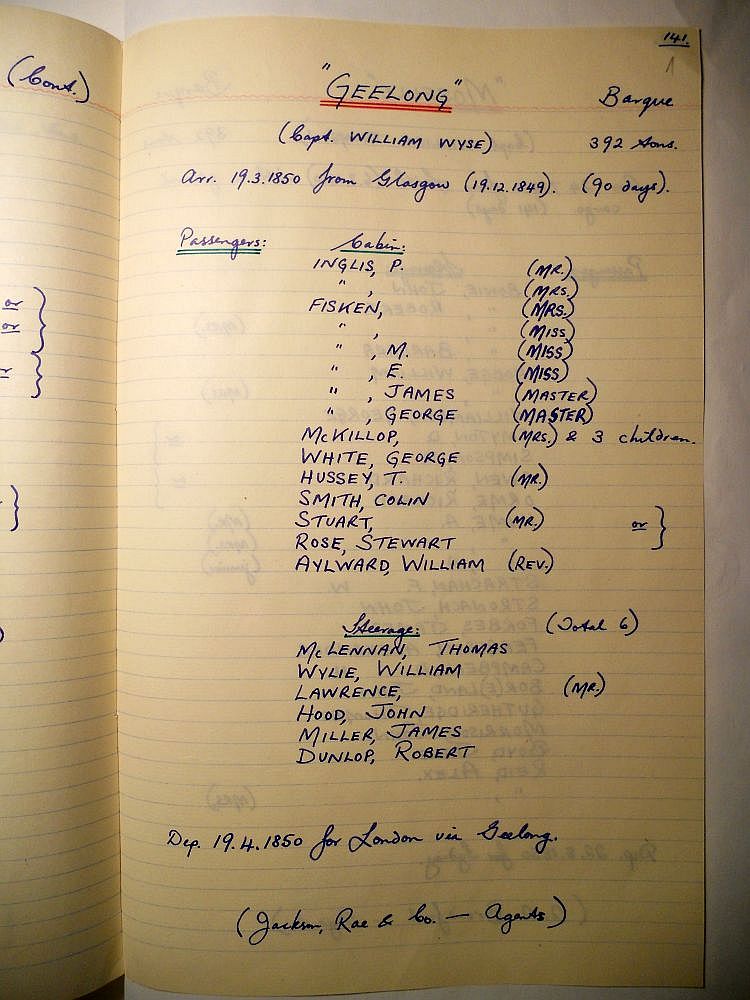 141.
1
(Cont.)
"GEELONG" Barque
(Capt. WILLIAM WYSE) 392 tons.
Arr. 19.3.1850 from Glasgow (19.12.1849). (90 days).
Passengers: Cabin:
INGLIS, P. (MR.)
" , (MRS.)
FISKEN, (MRS.)
" , (MISS)
" , M. (MISS)
" , E. (MISS)
" , JAMES (MASTER)
" , GEORGE (MASTER)
McKILLOP, (MRS.) & 3 children.
WHITE, GEORGE
HUSSEY, T. (MR.)
SMITH, COLIN
STUART, (MR.) or }
ROSE, STEWART
AYLWARD, WILLIAM (REV.)
Steerage: (Total 6)
McLENNAN, THOMAS
WYLIE, WILLIAM
LAWRENCE, (MR.)
HOOD, JOHN
MILLER, JAMES
DUNLOP, ROBERT
Dep. 19.4.1850 for London via Geelong.
(Jackson, Rae & Co. — Agents)